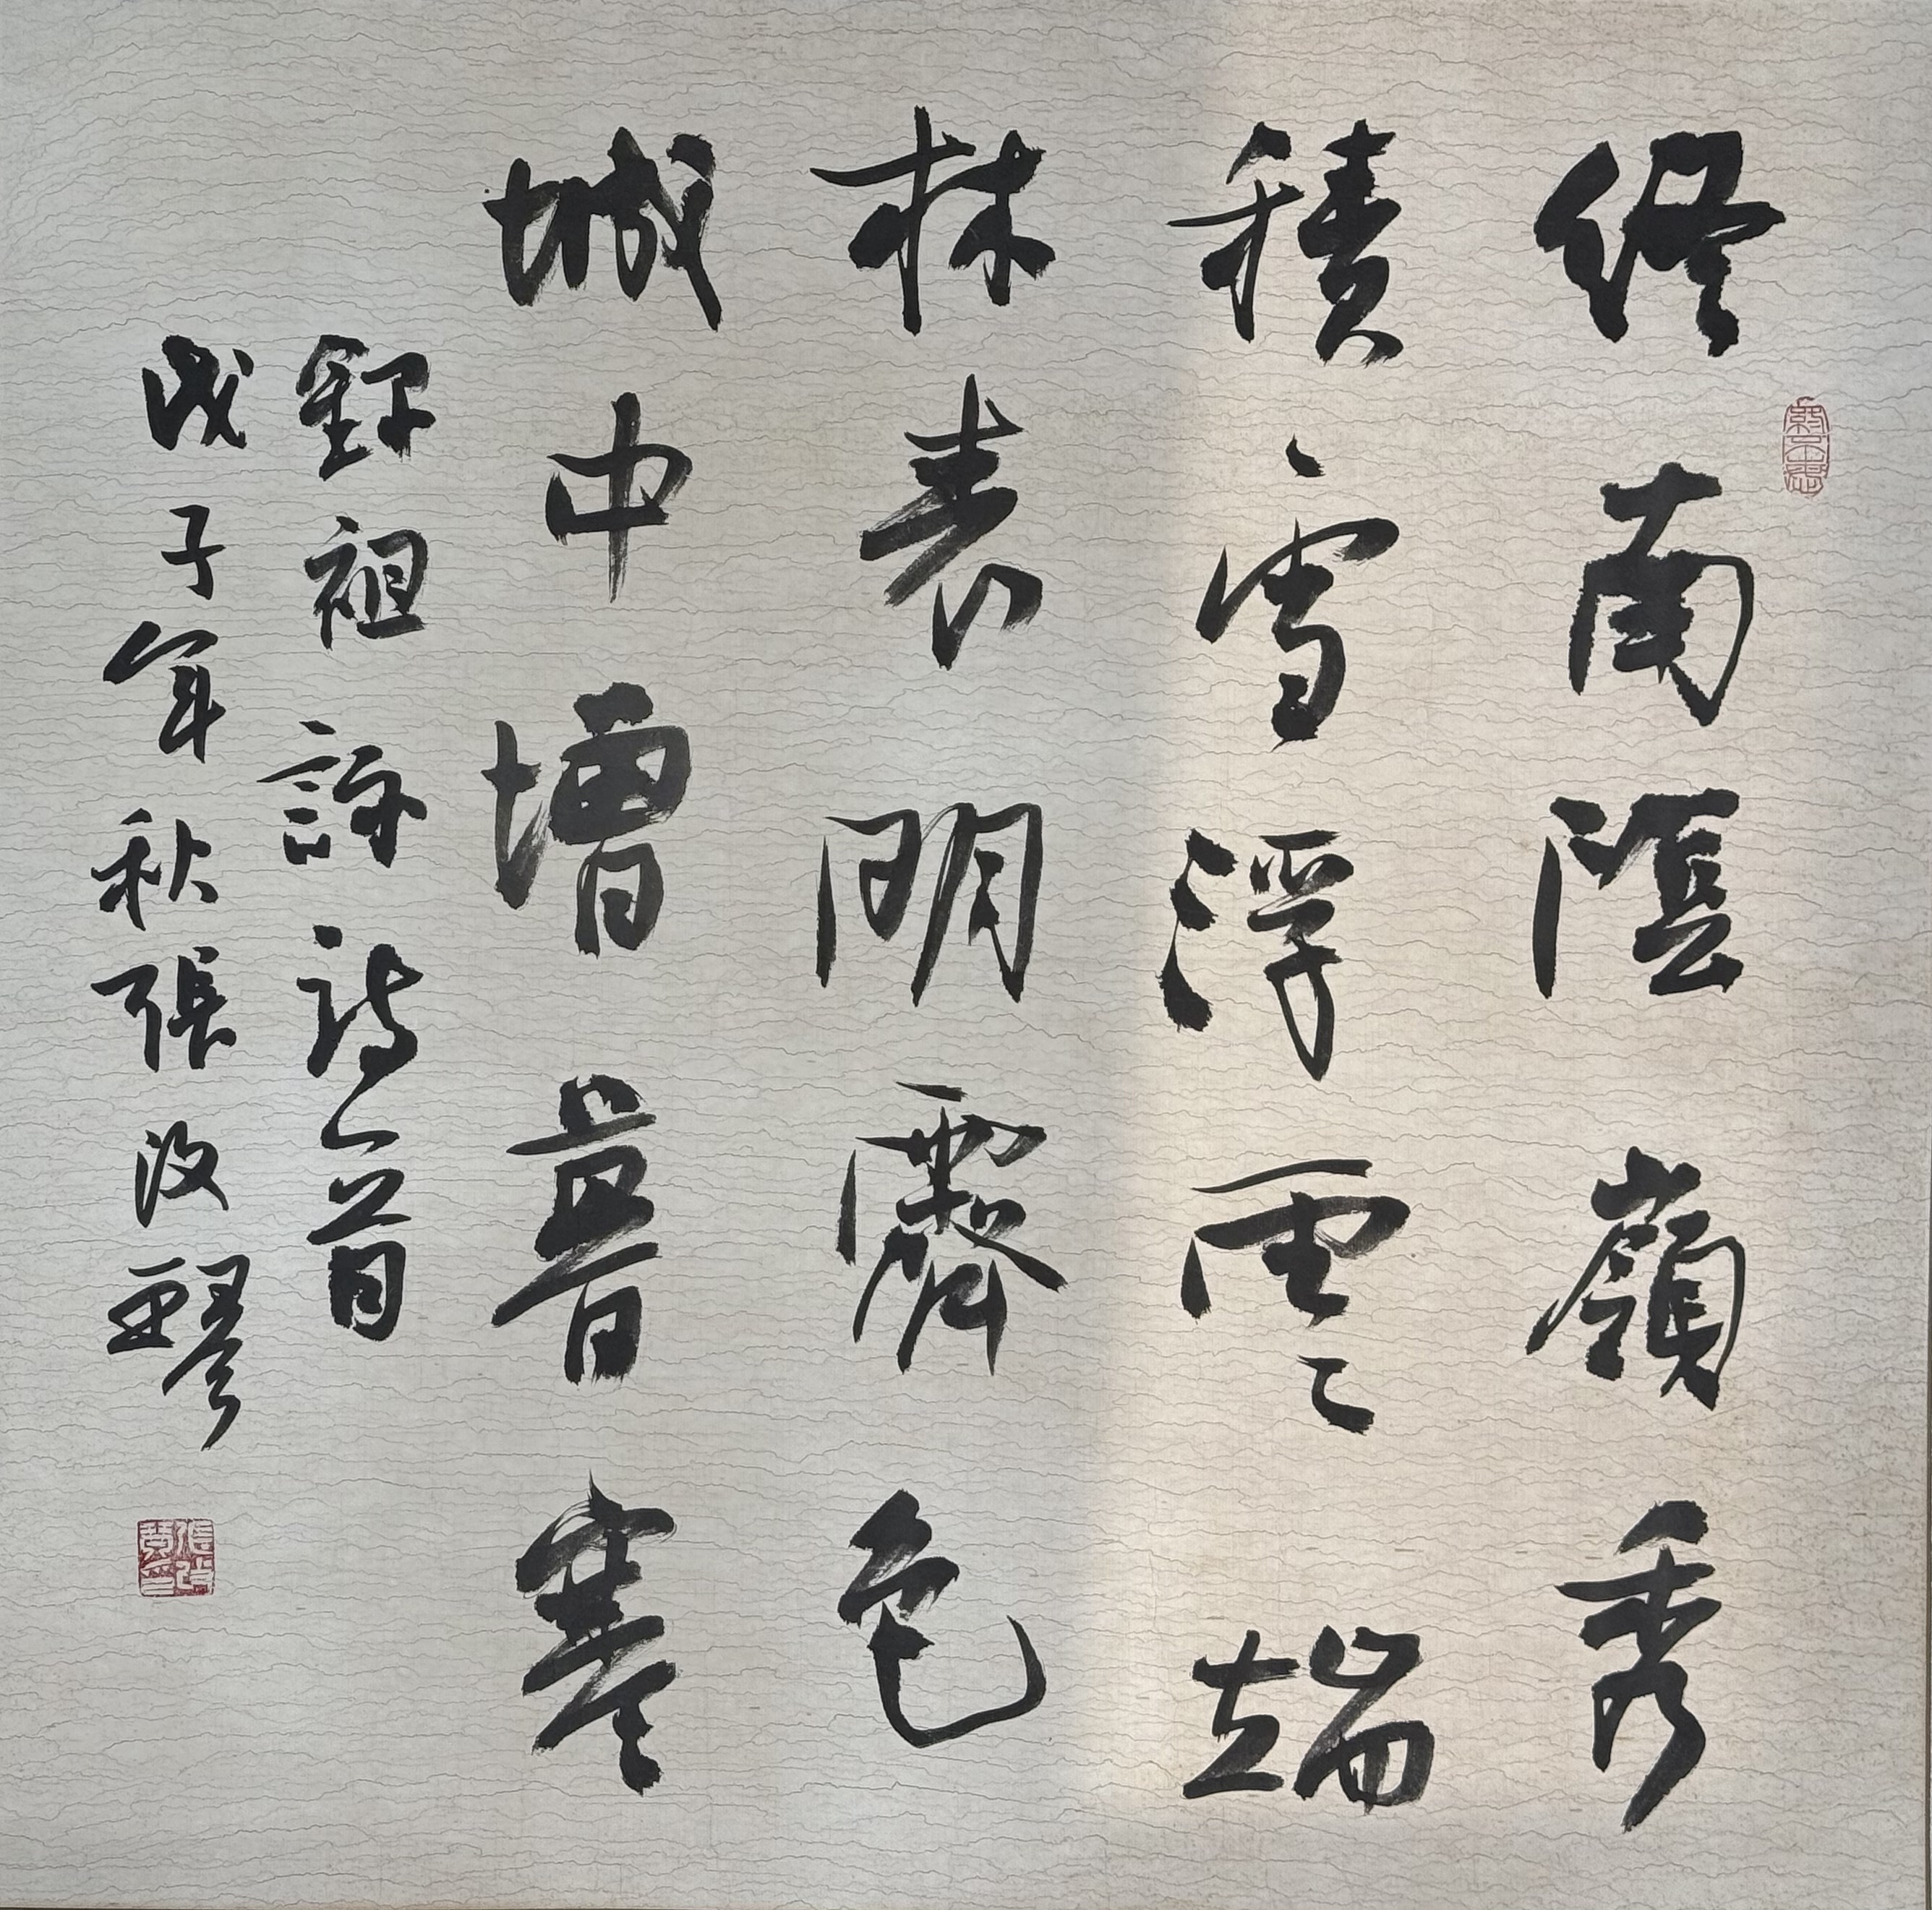 終南陰嶺秀
積雪浮雲端
林表明霽色
城中增暮寒
録祖詠詩一首
戊子年秋張汝